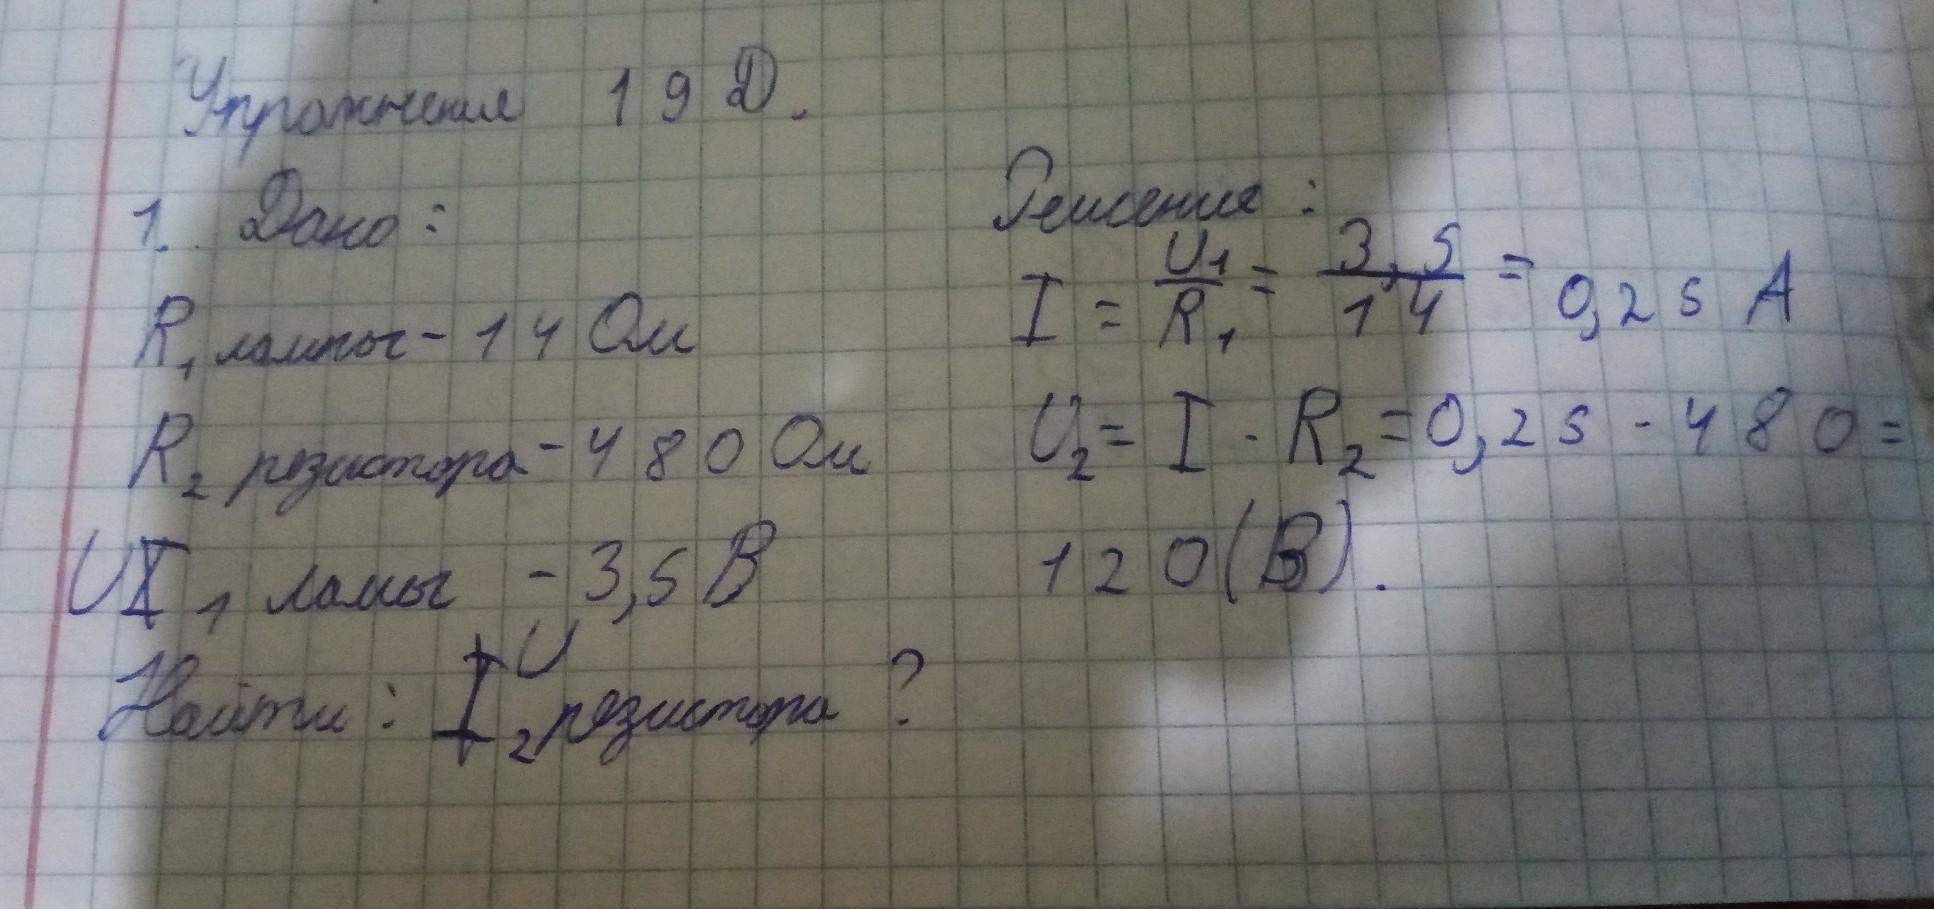 Упражнения 19Д.
1. Дано:
R₁ лампы - 14 Ом
R₂ резистора - 480 Ом
U₁ лампы - 3,5 В
Найти: U₂ резистора ?
Решение:
I = U₁/R₁ = 3,5/14 = 0,25 А
U₂ = I · R₂ = 0,25 · 480 =
120 (В).